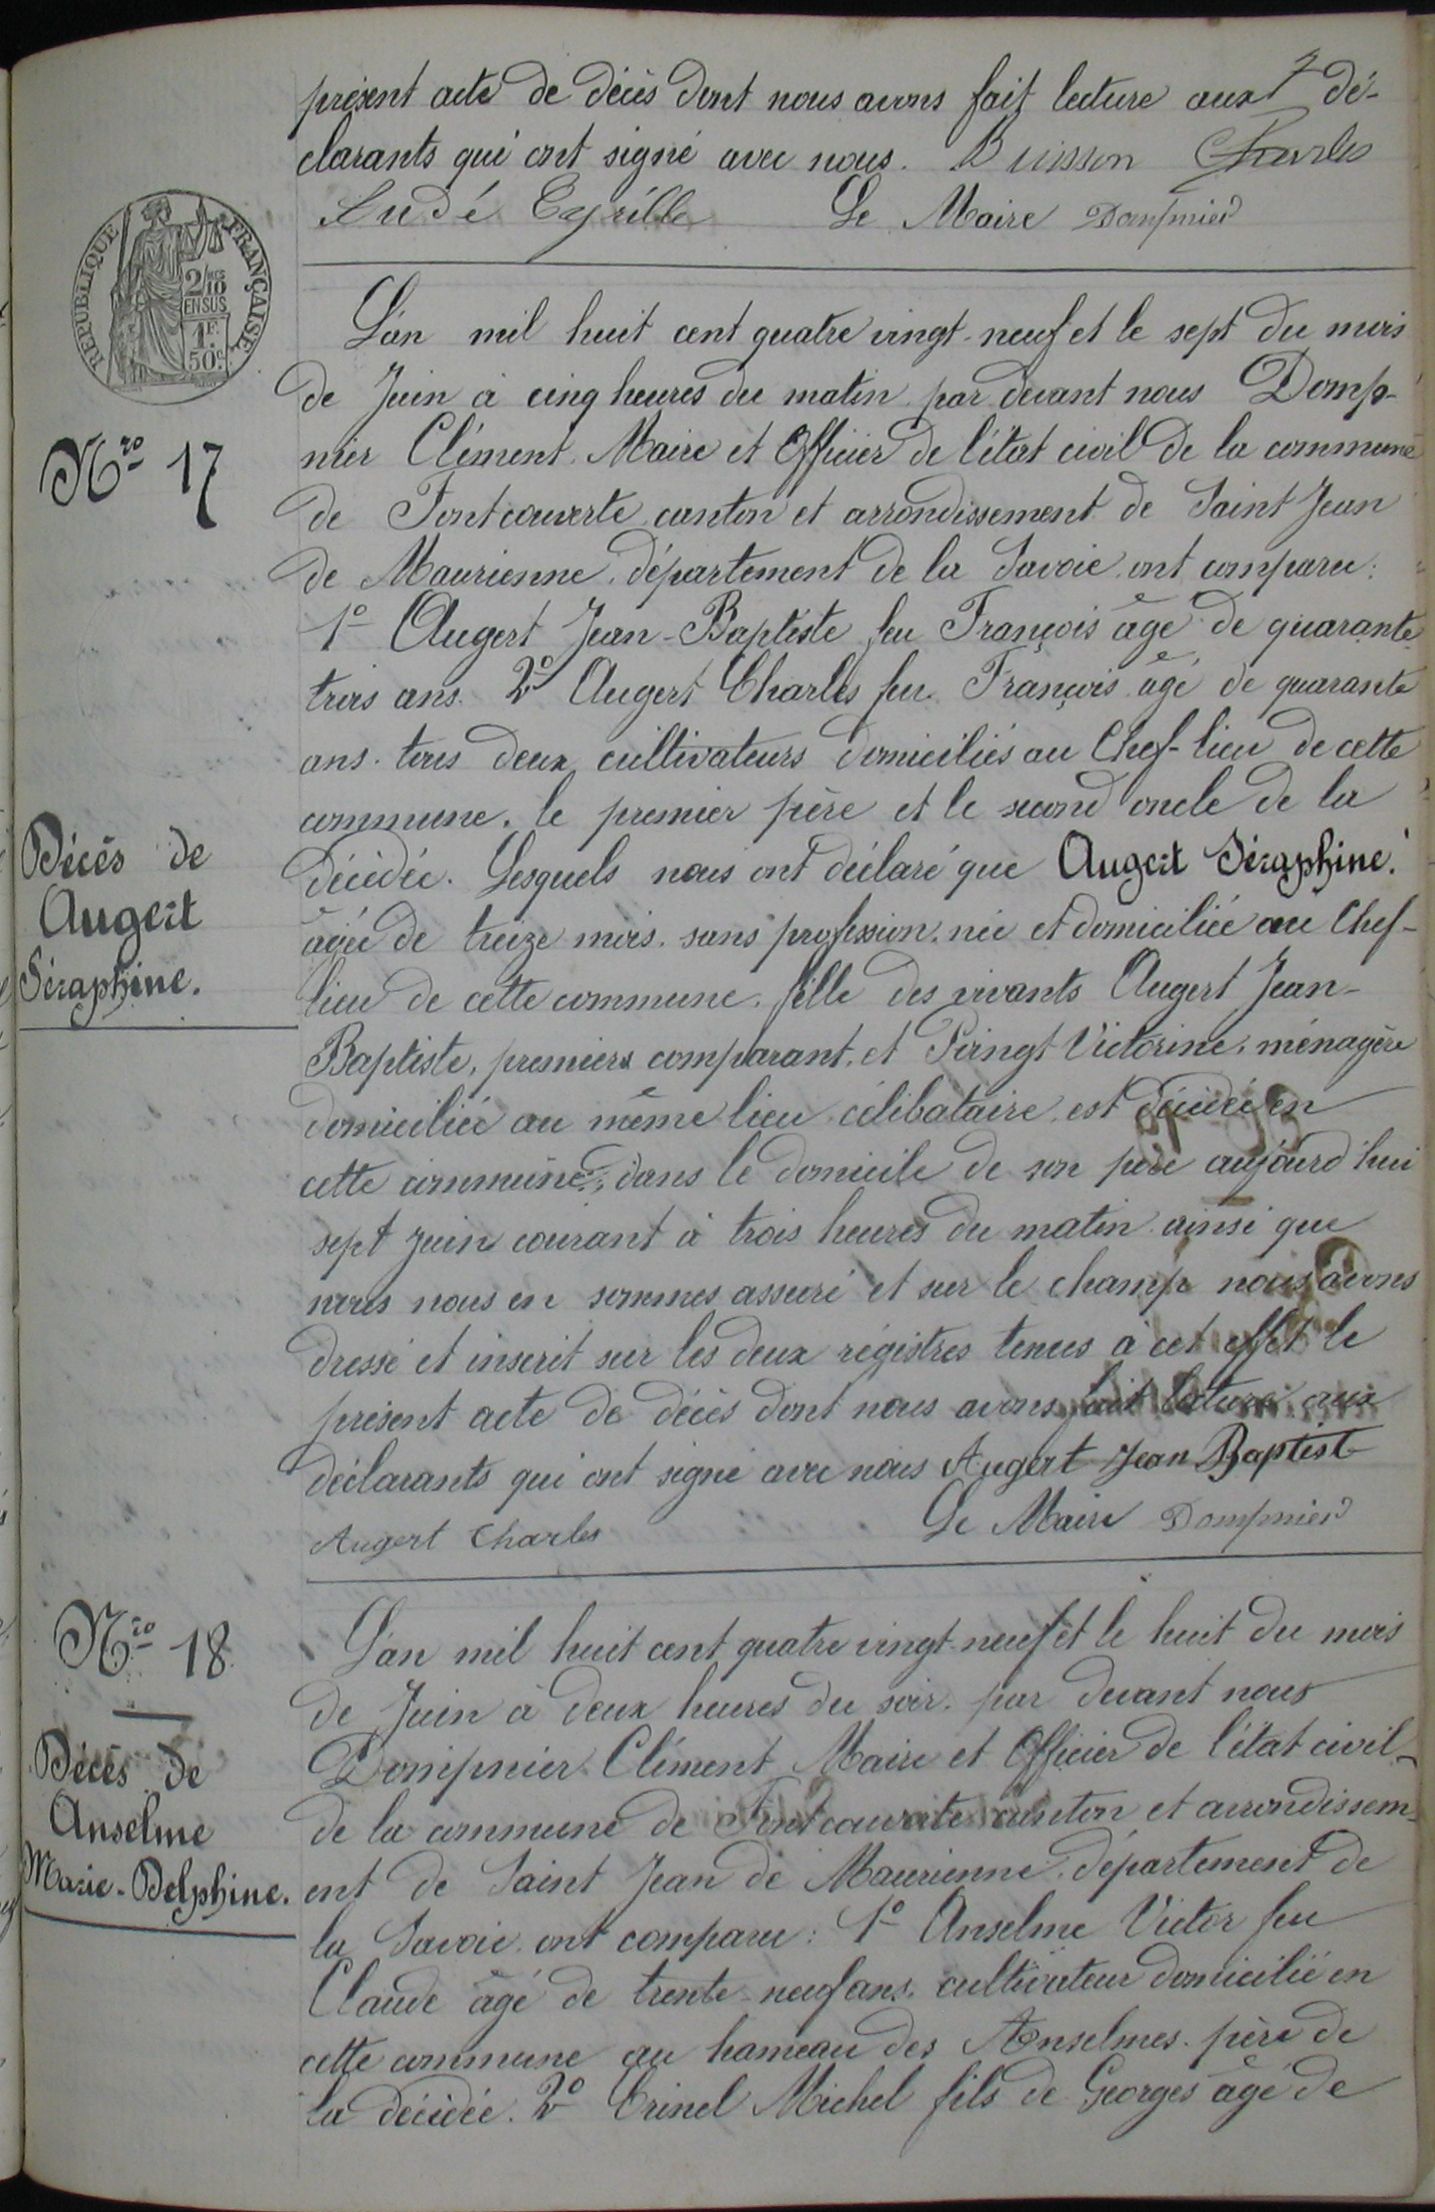 présent acte de décès dont nous avons fait lecture aux dé-
clarants qui ont signé avec nous. Buisson Charles
Cyrille Le Maire Dompnier
REPUBLIQUE FRANÇAISE
2/10MES
EN SUS
1F.
50c.
Nro 17
L'an mil huit cent quatre vingt-neuf et le sept du mois
de Juin à cinq heures du matin par devant nous Domp-
nier Clément, Maire et Officier de l'état civil de la commune
de Fontcouverte canton et arrondissement de Saint Jean
de Maurienne, département de la Savoie ont comparu:
1o Augert Jean-Baptiste feu François âgé de quarante
trois ans. 2o Augert Charles feu François âgé de quarante
ans. tous deux cultivateurs domiciliés au Chef-lieu de cette
commune, le premier père et le second oncle de la
décédée. Lesquels nous ont déclaré que Augert Séraphine.
Décès de
Augert
Séraphine.
âgée de treize mois. sans profession, née et domiciliée au Chef-
lieu de cette commune, fille des vivants Augert Jean-
Baptiste, premier comparant, et Victorine, ménagère
domiciliée au même lieu, célibataire, est décédée en
cette commune, dans le domicile de son père aujourd'hui
sept Juin courant à trois heures du matin ainsi que
nous nous en sommes assuré et sur le champ nous avons
dressé et inscrit sur les deux régistres tenus à cet effet le
présent acte de décès dont nous avons fait lecture aux
déclarants qui ont signé avec nous Augert Jean Baptist
Augert Charles Le Maire Dompnier
Nro 18
Décès de
Anselme
Marie-Delphine.
L'an mil huit cent quatre vingt-neuf et le huit du mois
de Juin à deux heures du soir. par devant nous
Dompnier Clément Maire et Officier de l'état civil
de la commune de Fontcouverte canton et arrondissem-
ent de Saint Jean de Maurienne, département de
la Savoie ont comparu: 1o Anselme Victor feu
Claude âgé de trente-neuf ans, cultivateur domicilié en
cette commune au hameau des Anselmes. père de
la décédée. 2o Michel fils de Georges âgé de